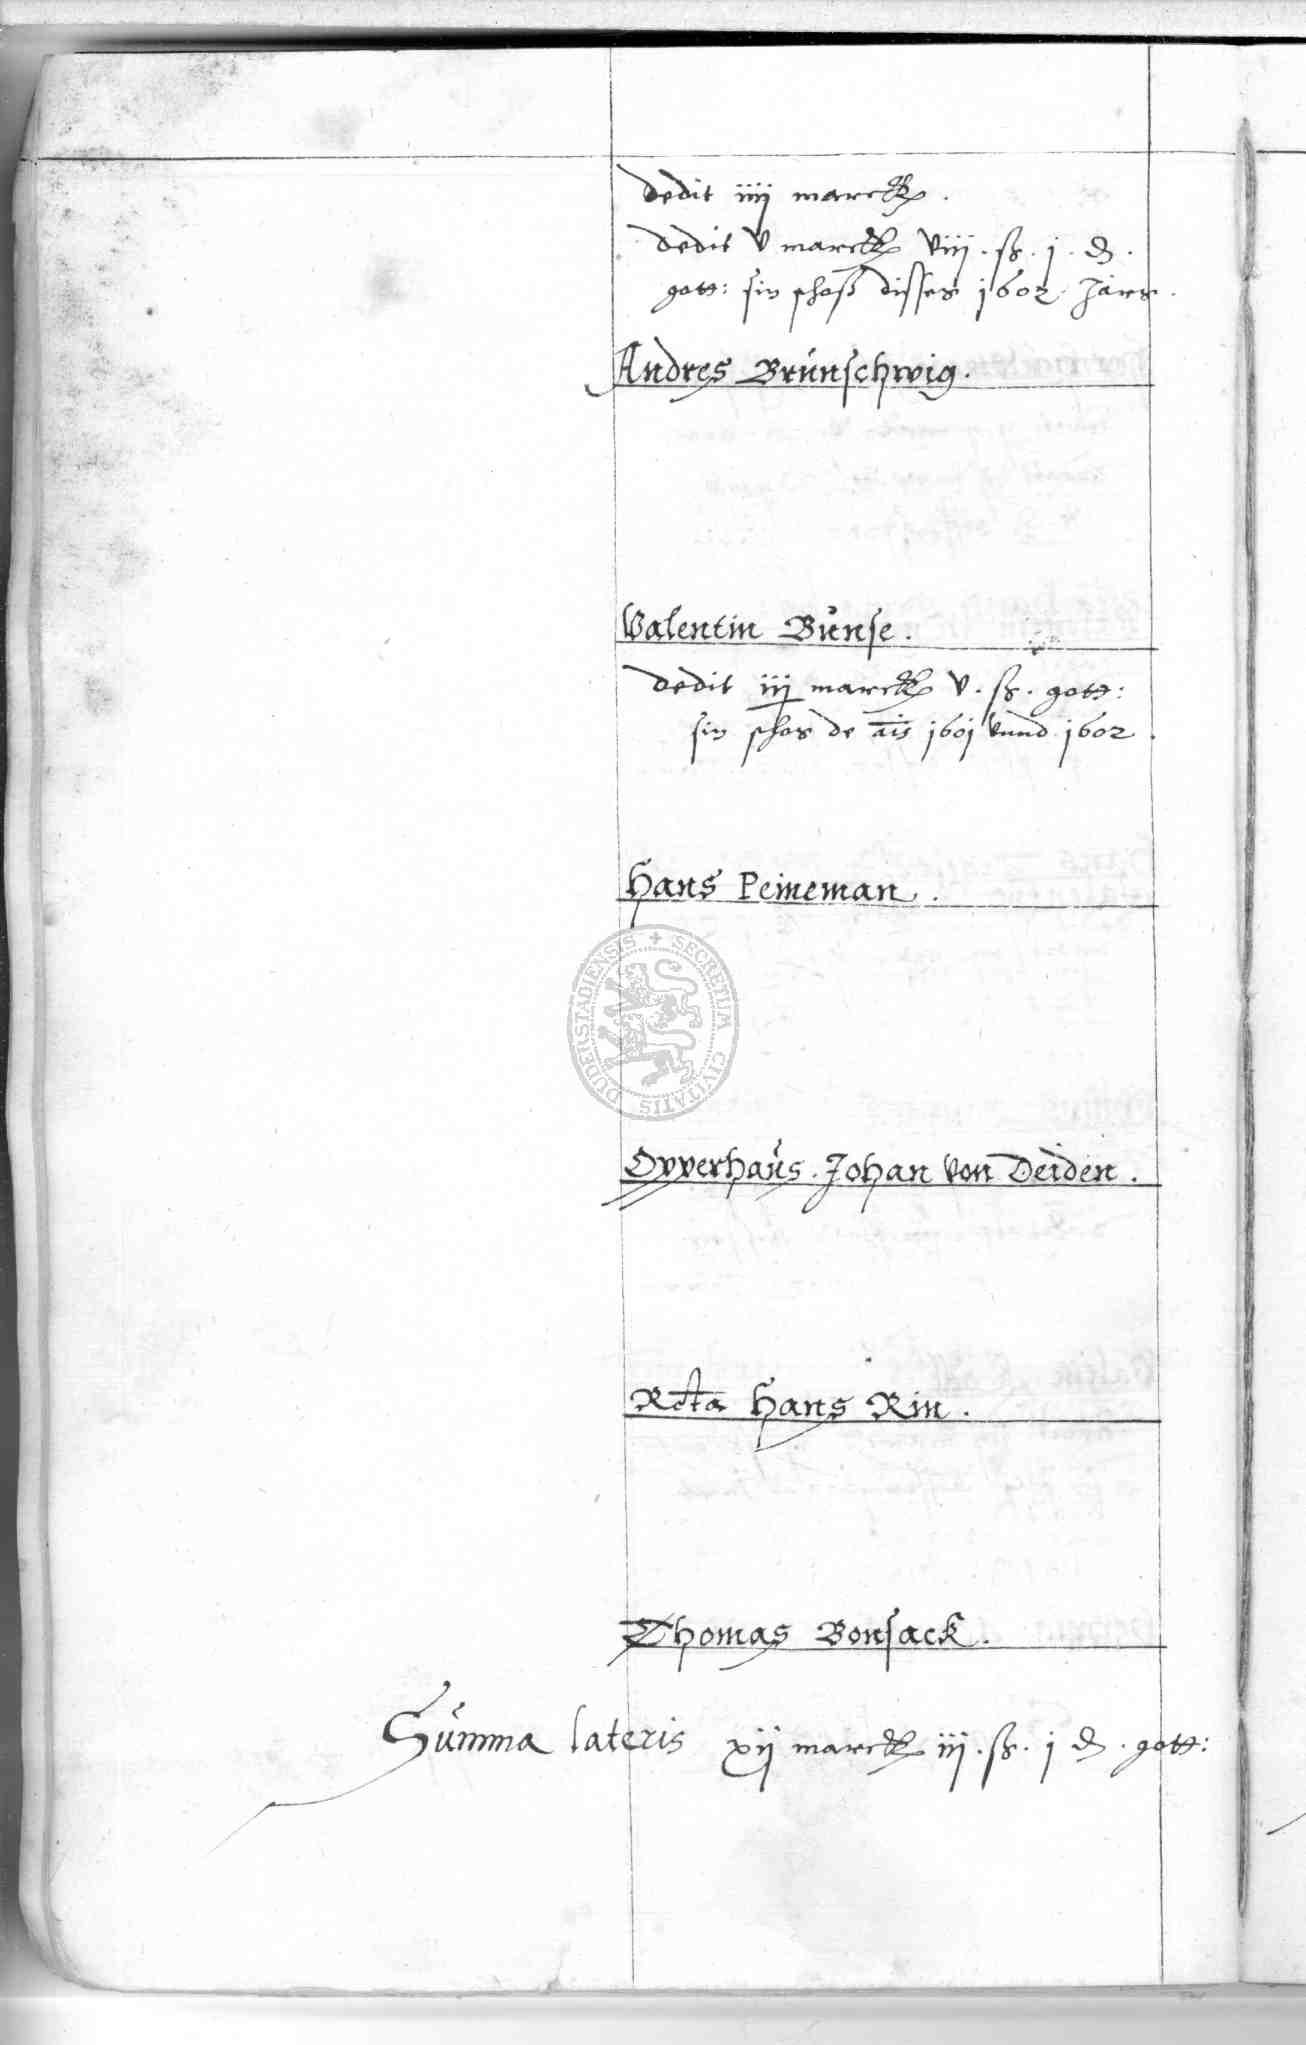 dedit iiij marck .
dedit v marck viij . ß . j . ₰ .
gott: sin schoß disses 1602 Jars .
Andres Brunschwig .
Valentin Bunse .
dedit iij marck v . ß . gott:
sin schos de ais 1601 vnnd 1602 .
Hans Peineman .
SECRETUM CIVITATIS DUDERSTADIENSIS
Opperhaus . Johan von Deiden .
Rcta Hans Rin .
Thomas Bonsack .
Summa lateris xij marck iij . ß . j ₰ . gott: